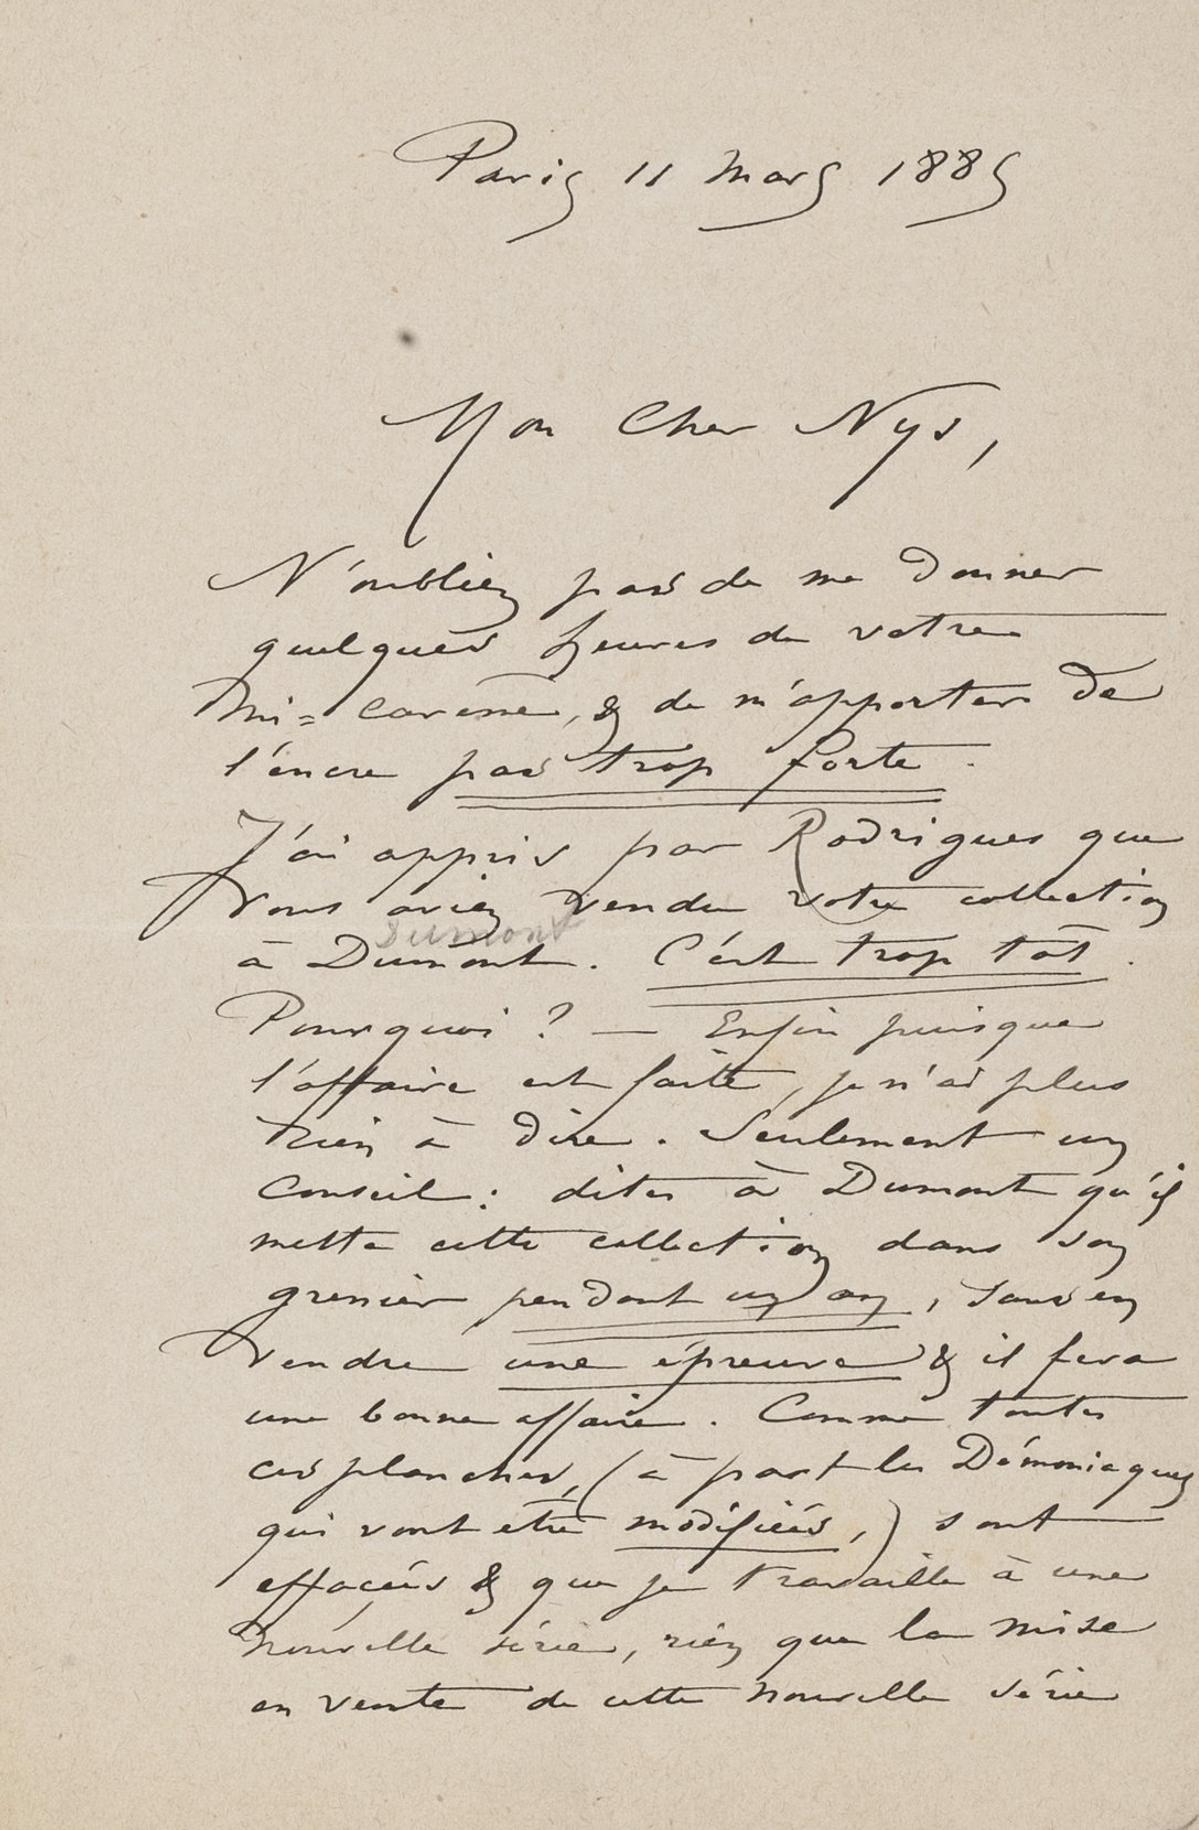 Paris 11 Mars 1885
Mon Cher Nys,
N'oubliez pas de me donner
quelques heures de votre
Mi=carême, & de m'apporter de
l'encre pas trop forte.
J'ai appris par Rodrigues que
vous aviez vendu votre collection
Dumont
à Dumont. C'est trop tôt.
Pourquoi ? — Enfin puisque
l'affaire est faite, je n'ai plus
rien à dire. Seulement un
conseil : dites à Dumont qu'il
mette cette collection dans son
grenier pendant un an, sans en
vendre une épreuve & il fera
une bonne affaire. Comme toutes
ces planches, (à part les Démoniaques
qui vont être modifiées,) sont
effacées & que je travaille à une
nouvelle série, rien que la mise
en vente de cette nouvelle série